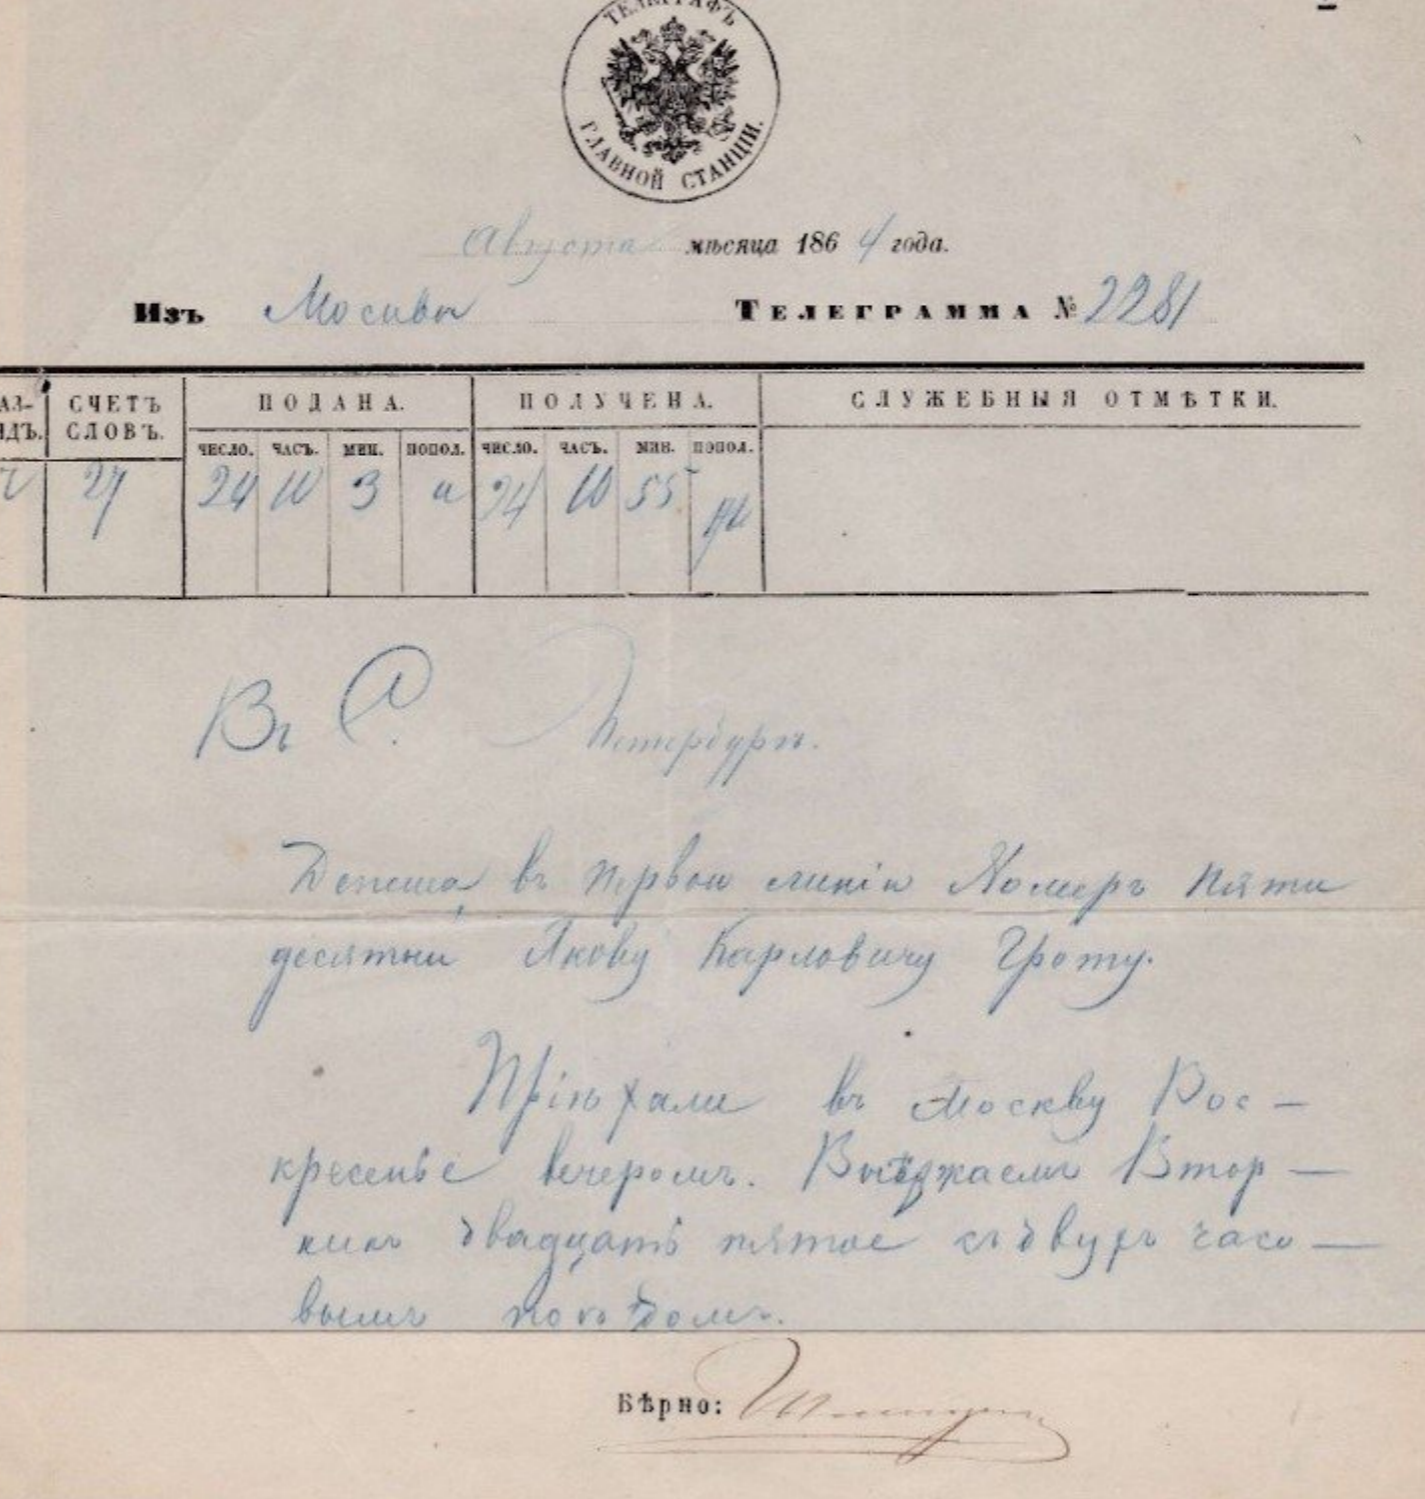 ТЕЛЕГРАФЪ
ГЛАВНОЙ СТАНЦІИ.
Августа мѣсяца 1864 года.
Изъ Москвы ТЕЛЕГРАММА № 2281
СЧЕТЪ СЛОВЪ. ПОДАНА. ПОЛУЧЕНА. СЛУЖЕБНЫЯ ОТМѢТКИ.
ЧИСЛО. ЧАСЪ. МИН. ПОПОЛ. ЧИСЛО. ЧАСЪ. МИН. ПОПОЛ.
27 24 10 3 24 10 55
Въ С. Петербургъ.
въ первой линіи Номеръ пяти
десятый Якову Карловичу Гроту.
Пріѣхали въ Москву Вос-
кресенье вечеромъ. Выѣзжаемъ Втор-
никъ двадцать пятое съ двухъ часо-
вымъ поѣздомъ.
Вѣрно: